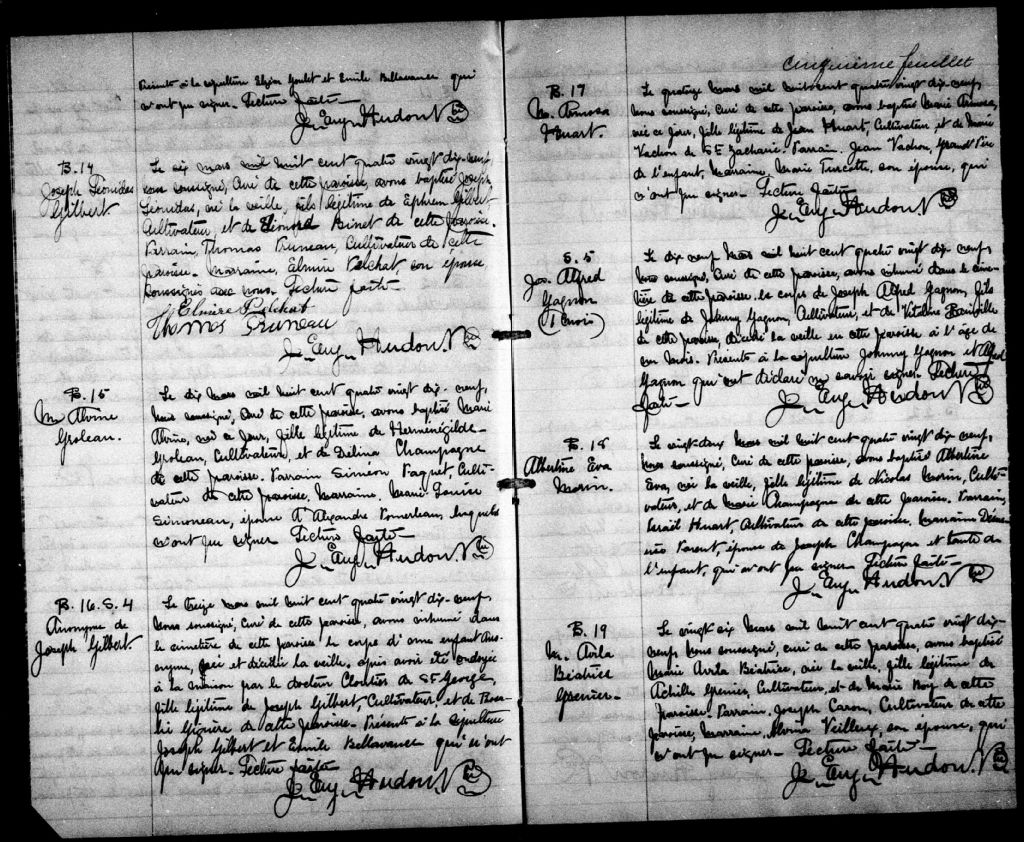 Présents à la sépulture Elzéar Goulet et Emile Bellavance qui
n'ont pu signer. Lecture faite
J. Eug. Hudon
B. 14
Joseph Léonidas
Gilbert
Le six mars mil huit cent quatre vingt dix-neuf,
nous soussigné, Curé de cette paroisse, avons baptisé Joseph
Léonidas, né la veille, fils légitime de Ephrem Gilbert
Cultivateur, et de Binet de cette paroisse.
Parrain, Thomas Pruneau, Cultivateur de cette
paroisse. Marraine, Elmire Pelchat, son épouse
soussignés avec nous. Lecture faite
Elmire Pelchat
Thomas Pruneau
J. Eug. Hudon
B. 15
M. Alvine
Groleau.
Le dix mars mil huit cent quatre vingt dix-neuf,
nous soussigné, Curé de cette paroisse, avons baptisé Marie
Alvine, née ce jour, fille légitime de Herménégilde
Groleau, Cultivateur, et de Délina Champagne
de cette paroisse. Parrain Siméon Paquet, Culti-
vateur de cette paroisse, Marraine, Marie Louise
Simoneau, épouse d'Alexandre Pomerleau, lesquels
n'ont pu signer Lecture faite
J. Eug. Hudon
B. 16. S. 4
Anonyme de
Joseph Gilbert.
Le treize mars mil huit cent quatre vingt dix-neuf
nous soussigné, Curé de cette paroisse, avons inhumé dans
le cimetière de cette paroisse le corps d'une enfant Ano-
nyme, née et décédée la veille, après avoir été ondoyée
à la maison par le docteur Cloutier de St George,
fille légitime de Joseph Gilbert, Cultivateur, et de
de cette paroisse. Présents à la sépulture
Joseph Gilbert et Emile Bellavance qui n'ont
pu signer. Lecture faite
J. Eug. Hudon
Cinquième feuillet
B. 17
M. Rimosa
Huart.
Le quatorze mars mil huit cent quatre vingt dix-neuf,
nous soussigné, Curé de cette paroisse, avons baptisé Marie Rimosa,
née ce jour, fille légitime de Jean Huart, Cultivateur et de Marie
Vachon de St Zacharie. Parrain, Jean Vachon, Grand Père
de l'enfant, Marraine, Marie Turcotte, son épouse, qui
n'ont pu signer. Lecture faite
J. Eug. Hudon
S. 5
Jos. Alfred
Gagnon
(1 mois)
Le dix neuf mars mil huit cent quatre vingt dix neuf
nous soussigné, Curé de cette paroisse, avons inhumé dans le cime-
tière de cette paroisse le corps de Joseph Alfred Gagnon, fils
légitime de Johnny Gagnon, Cultivateur, et de Vitaline
de cette paroisse, décédé la veille en cette paroisse à l'âge de
un mois. Présents à la sépulture Johnny Gagnon et Alfred
Gagnon qui ont déclaré ne savoir signer. Lecture
faite
J. Eug. Hudon
B. 18
Albertine Eva
Morin.
Le vingt-deux mars mil huit cent quatre vingt dix neuf,
nous soussigné, Curé de cette paroisse, avons baptisé Albertine
Eva, née la veille, fille légitime de Nicolas Morin, Culti-
vateur, et de Marie Champagne de cette paroisse. Parrain,
Huart, Cultivateur de cette paroisse, Marraine
Parent, épouse de Joseph Champagne et tante de
l'enfant, qui n'ont pu signer. Lecture faite
J. Eug. Hudon
B. 19
M. Avila
Béatrice
Grenier
Le vingt six mars mil huit cent quatre vingt dix-
neuf nous soussigné, curé de cette paroisse, avons baptisé
Marie Avila Béatrice, née la veille, fille légitime de
Achille Grenier, Cultivateur, et de Marie Roy de cette
paroisse. Parrain, Joseph Caron, Cultivateur de cette
paroisse, Marraine, Alvina Veilleux, son épouse, qui
n'ont pu signer. Lecture faite
J. Eug. Hudon